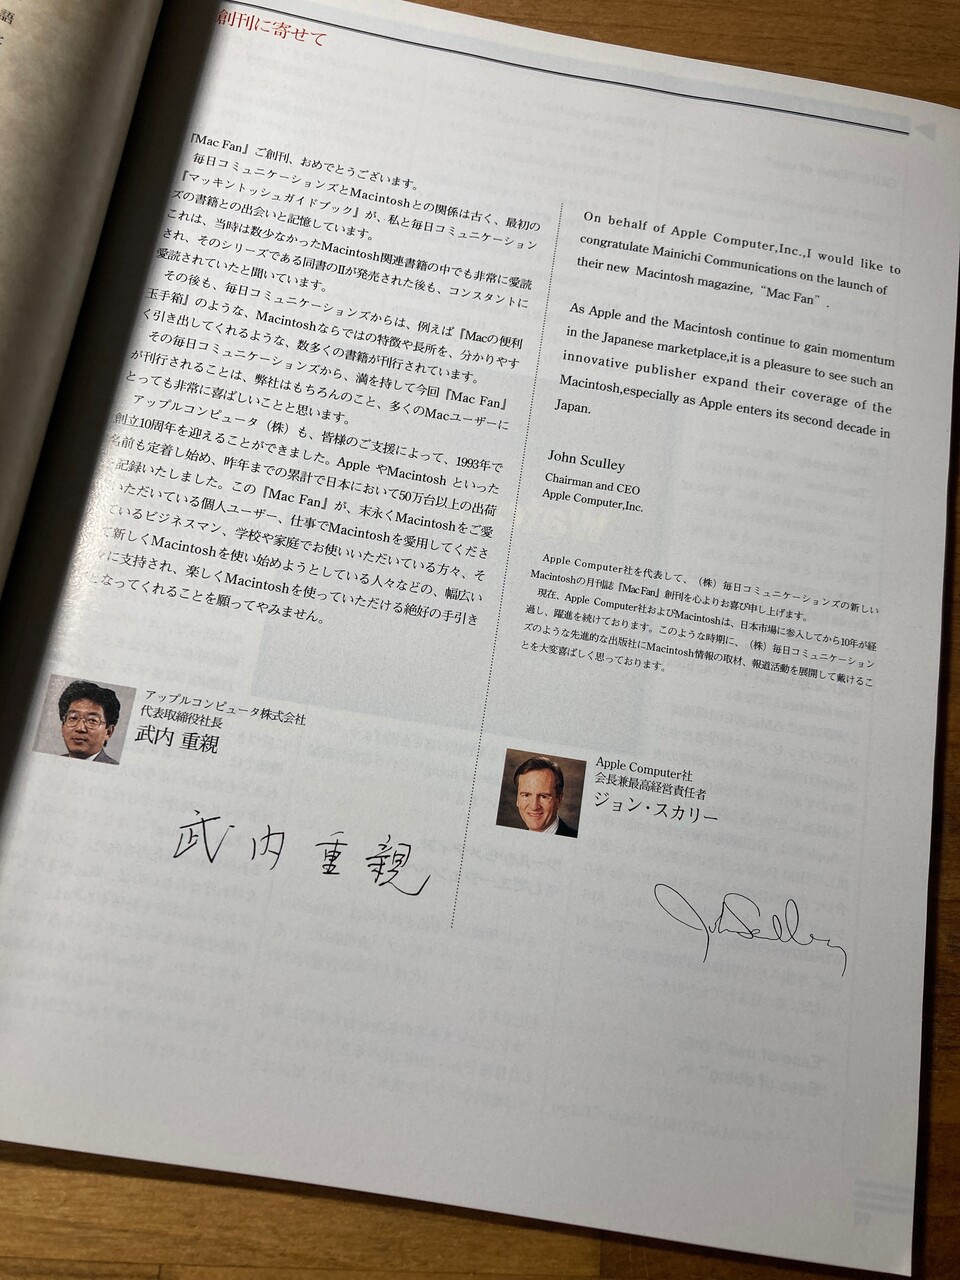 語
創刊に寄せて
『Mac Fan』ご創刊、おめでとうございます。
毎日コミュニケーションズとMacintoshとの関係は古く、最初の
『マッキントッシュガイドブック』が、私と毎日コミュニケーション
ズの書籍との出会いと記憶しています。
これは、当時は数少なかったMacintosh関連書籍の中でも非常に愛読
され、そのシリーズである同書のⅡが発売された後も、コンスタントに
愛読されていたと聞いています。
その後も、毎日コミュニケーションズからは、例えば『Macの便利
玉手箱』のような、Macintoshならではの特徴や長所を、分かりやす
く引き出してくれるような、数多くの書籍が刊行されています。
その毎日コミュニケーションズから、満を持して今回『Mac Fan』
が刊行されることは、弊社はもちろんのこと、多くのMacユーザーに
とっても非常に喜ばしいことと思います。
アップルコンピュータ（株）も、皆様のご支援によって、1993年で
創立10周年を迎えることができました。Apple やMacintosh といった
名前も定着し始め、昨年までの累計で日本において50万台以上の出荷
記録いたしました。この『Mac Fan』が、末永くMacintoshをご愛
いただいている個人ユーザー、仕事でMacintoshを愛用してくださ
ているビジネスマン、学校や家庭でお使いいただいている方々、そ
新しくMacintoshを使い始めようとしている人々などの、幅広い
に支持され、楽しくMacintoshを使っていただける絶好の手引き
なってくれることを願ってやみません。
アップルコンピュータ株式会社
代表取締役社長
武内 重親
武内重親
On behalf of Apple Computer,Inc.,I would like to
congratulate Mainichi Communications on the launch of
their new Macintosh magazine, “Mac Fan”.
As Apple and the Macintosh continue to gain momentum
in the Japanese marketplace,it is a pleasure to see such an
innovative publisher expand their coverage of the
Macintosh,especially as Apple enters its second decade in
Japan.
John Sculley
Chairman and CEO
Apple Computer,Inc.
Apple Computer社を代表して、（株）毎日コミュニケーションズの新しい
Macintoshの月刊誌『Mac Fan』創刊を心よりお喜び申し上げます。
現在、Apple Computer社およびMacintoshは、日本市場に参入してから10年が経
過し、躍進を続けております。このような時期に、（株）毎日コミュニケーション
ズのような先進的な出版社にMacintosh情報の取材、報道活動を展開して戴けるこ
とを大変喜ばしく思っております。
Apple Computer社
会長兼最高経営責任者
ジョン・スカリー
John Sculley